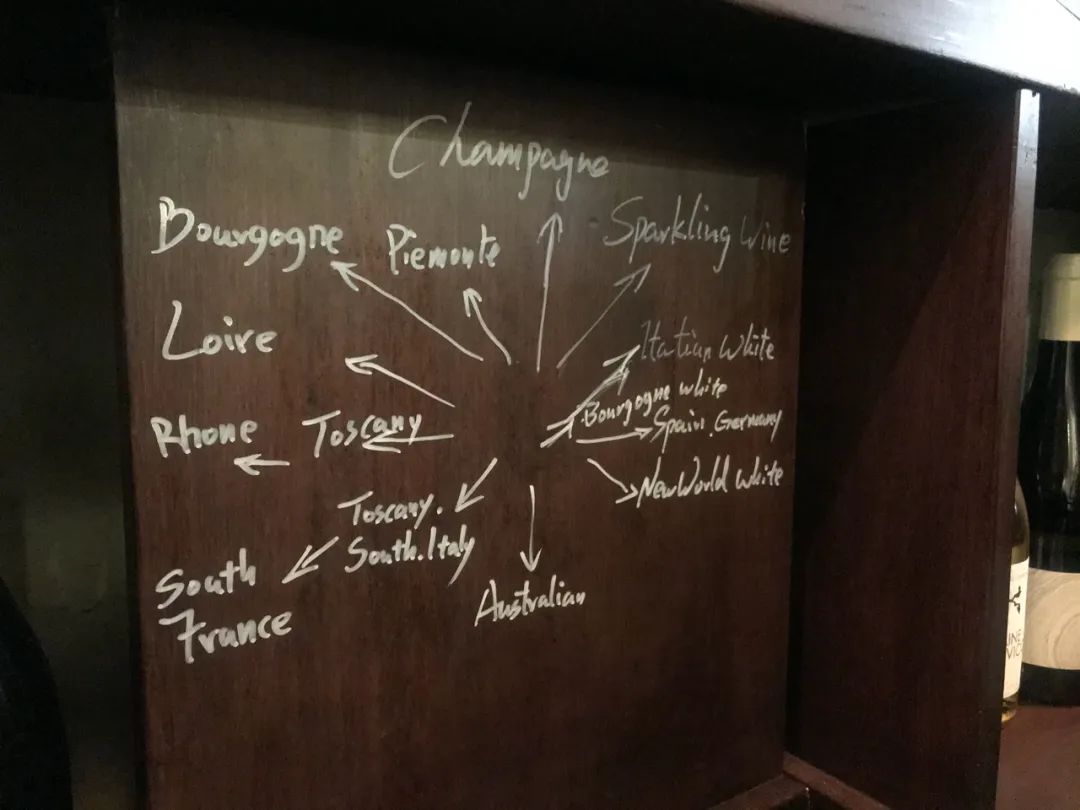 Champagne
Bourgogne
Piemonte
Sparkling Wine
Loire
Italian White
Bourgogne white
Rhone
Toscany
Spain.Germany
New World White
Toscany.
South.Italy
South
France
Australian